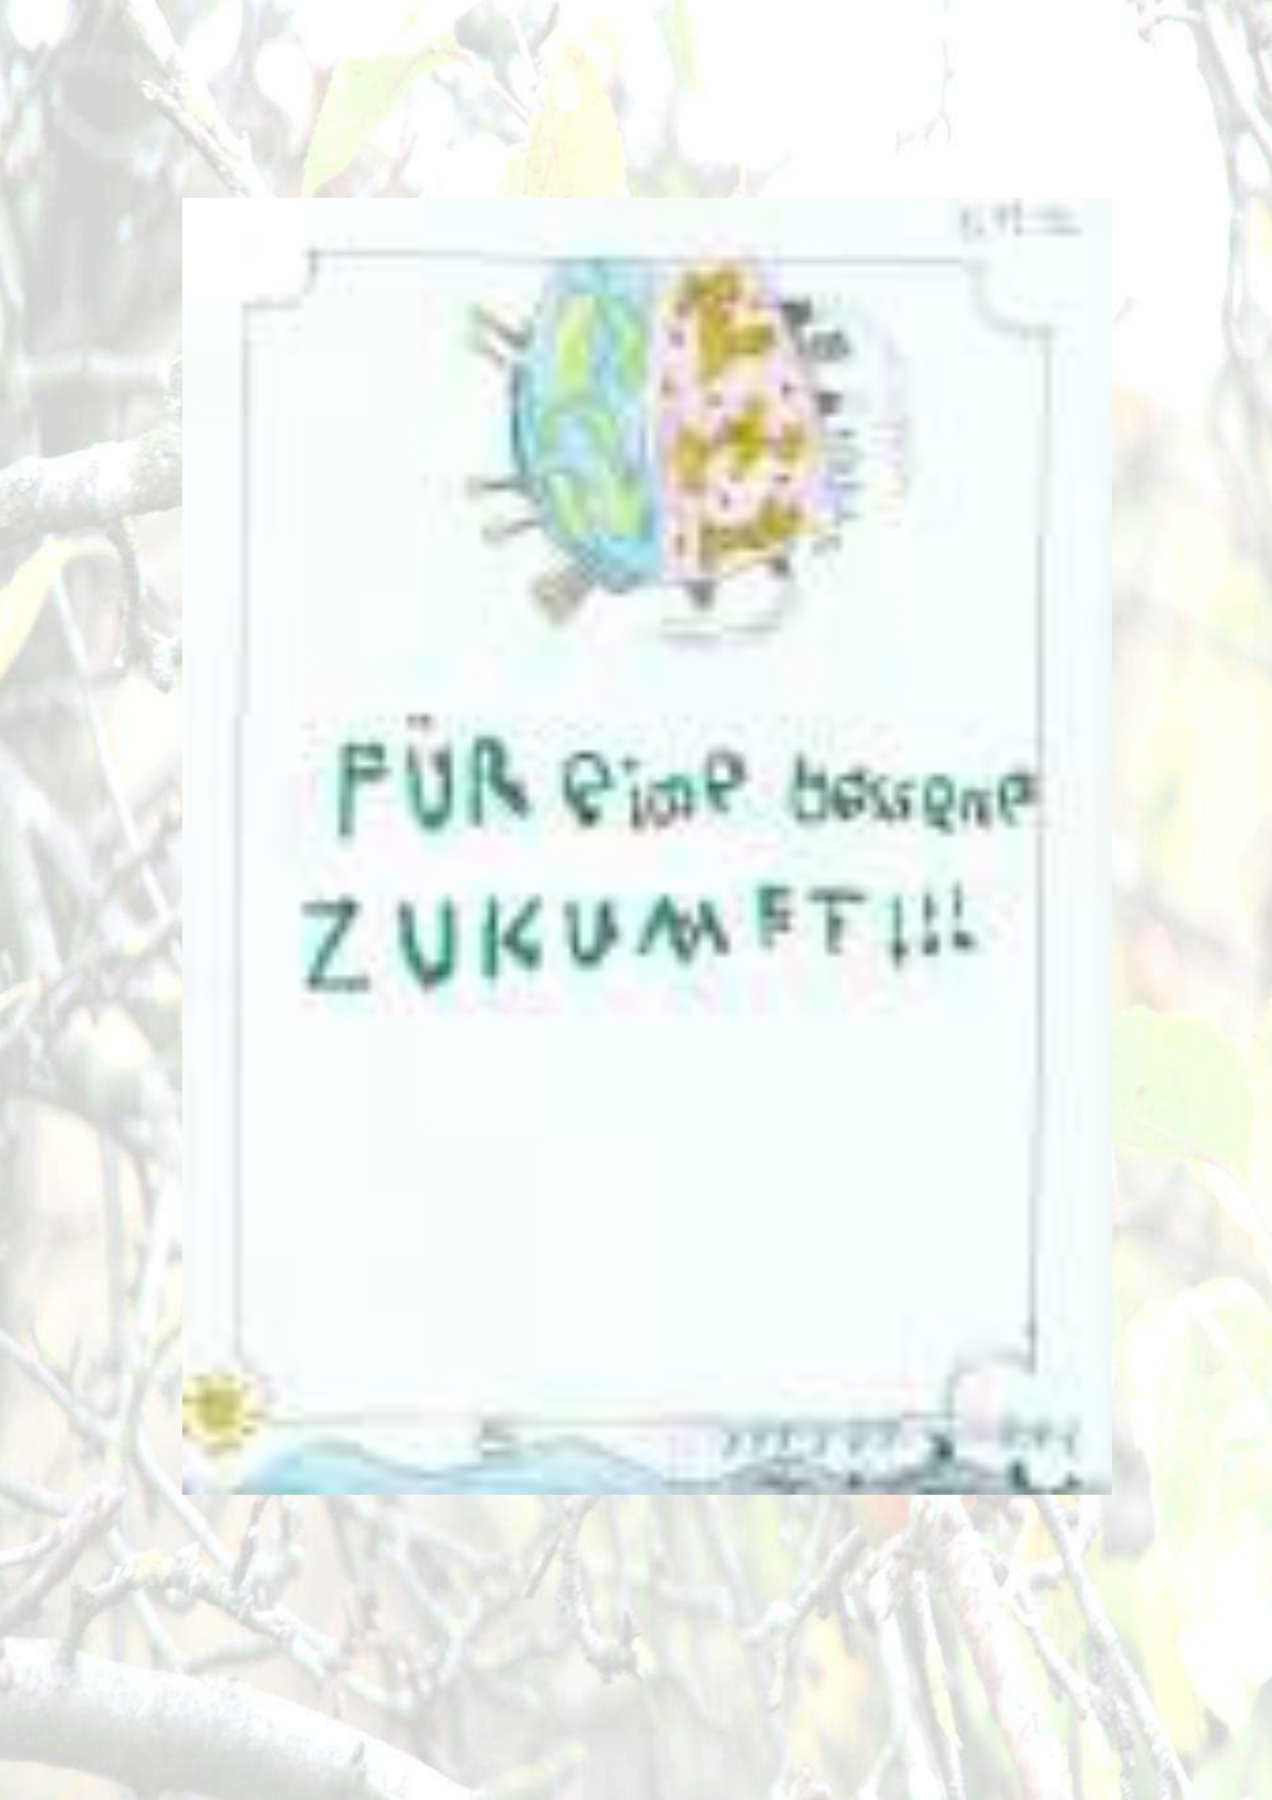 FÜR eine bessere
ZUKUMFT!!!